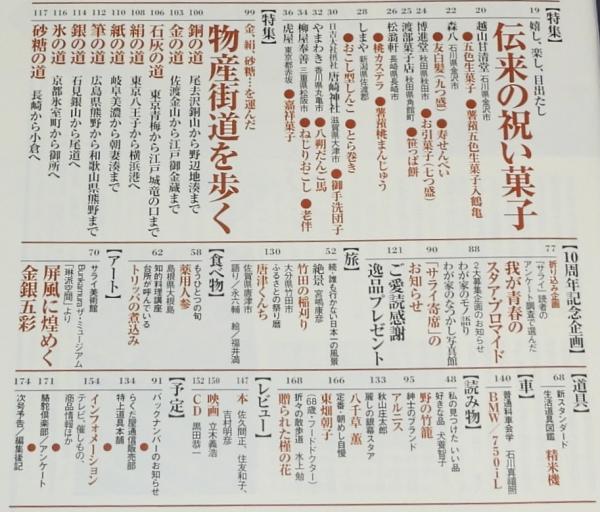 【特集】
19 嬉し、楽し、目出たし
伝来の祝い菓子
20 越山甘清堂 石川県金沢市
●五色生菓子 ●薯蕷五色生菓子入鶴亀
22 森八 石川県金沢市
●友白髪(九つ盛) ●寿せんべい
24 博進堂 秋田県秋田市
●お引菓子(七つ盛)
25 渡部菓子店 秋田県角館町 ●笹っぱ餅
26 松翁軒 長崎県長崎市
●桃カステラ ●薯蕷桃まんじゅう
28 しまや 新潟県佐渡郡
●おこし型しんこ ●とら巻き
30 日吉大社授与 唐崎神社 滋賀県大津市 ●御手洗団子
32 やまわき 香川県丸亀市 ●八朔だんご馬
34 柳屋奉善 三重県松阪市 ●ねじりおこし ●老伴
36 虎屋 東京都赤坂 ●嘉祥菓子
【特集】
99 金、絹、砂糖…を運んだ
物産街道を歩く
100 銅の道 尾去沢銅山から野辺地湊まで
103 金の道 佐渡金山から江戸御金蔵まで
106 石灰の道 東京青梅から江戸城竜の口まで
108 絹の道 東京八王子から横浜港へ
110 紙の道 岐阜美濃から朝妻湊まで
111 筆の道 広島県熊野から和歌山県熊野まで
114 銀の道 石見銀山から尾道へ
116 氷の道 京都氷室町から御所へ
117 砂糖の道 長崎から小倉へ
【10周年記念企画】
77 折り込み企画
「サライ」読者の
アンケート調査で選んだ
我が青春の
スタア・ブロマイド
88 2大募集企画のお知らせ
わが家のモノ語り
わが家のなつかし写真館
90 「サライ寄席」の
お知らせ
121 ご愛読感謝
逸品プレゼント
【旅】
52 続・誰も行かない日本一の風景
絶景 宮嶋康彦
竹田の稲刈り
大分県竹田市
130 ふるさとの祭り暦
唐津くんち
佐賀県唐津市
語り/永六輔 絵/福井満
【食べ物】
58 もうひとつの旬
薬用人参
島根県大根島
62 知的料理講座
台所が呼んでいる
トリッパの煮込み
【アート】
70 サライ美術館
Bunkamura ザ・ミュージアム
「琳派空間」より
屏風に煌めく
金銀五彩
【道具】
68 新スタンダード
生活道具図鑑 精米機
【車】
140 普通科車会学 石川真禧照
BMW 750iL
【読み物】
48 私の見つけた いい品
好きな品 犬養智子
野の竹籠
95 紳士のブランド
アルニス
133 秋山庄太郎
麗しの銀幕スタア
八千草 薫
166 定番・朝めし自慢
東畑朝子
(68歳・フードドクター)
168 折々の散歩道 水上 勉
贈られた槿の花
【レビュー】
147 本 佐久間正、住友和子、
吉村明彦
150 映画 立木義浩
152 CD 黒田恭一
【予定】
91 バックナンバーのお知らせ
134 らくだ屋通信販売部
特上道具本舗
154 インフォメーション
テレビ、催しもの
商品情報ほか
171 駱駝倶楽部/アンケート
174 次号予告/編集後記